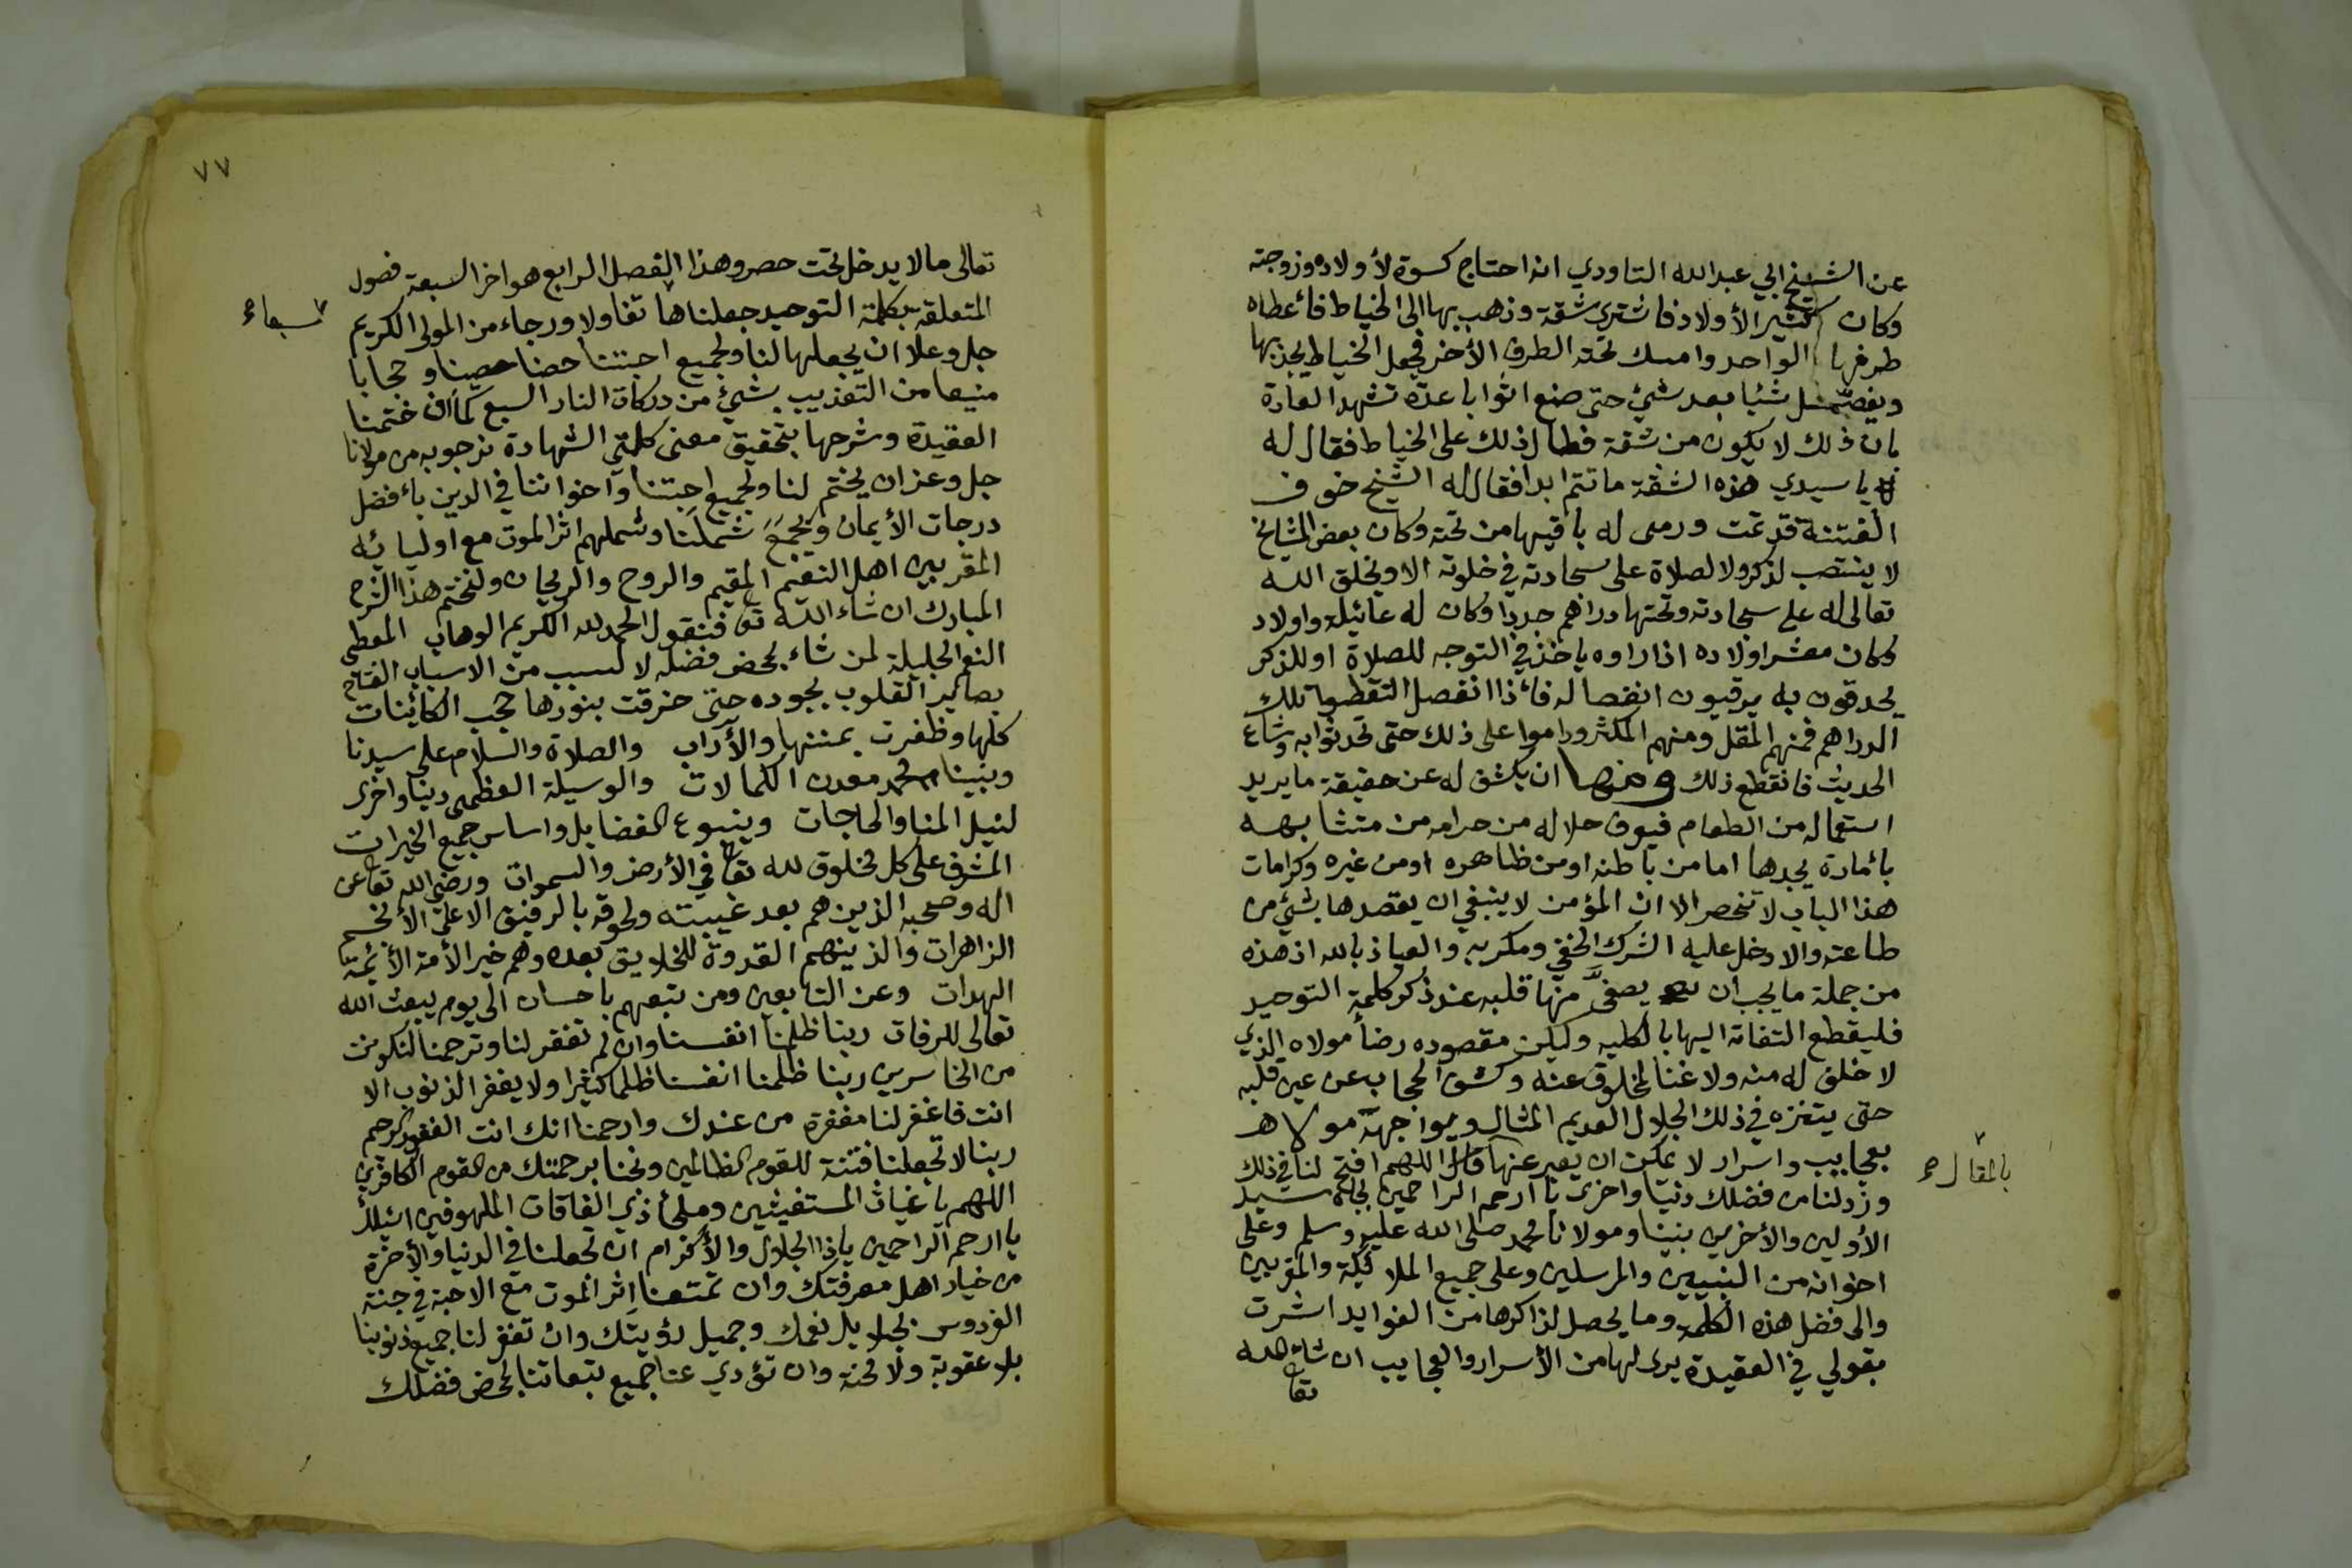 عن الشيخ ابي عبدالله التاودي انه احتاج كسوة لأولاده وزوجته
وكان كثير الأولاد فاشتري شقة وذهب بها الى الخياط فأعطاه
طرفها الواحد وامسك تحته الطرف الأخر فجعل الخياط يجذبها
ويفصل شئا بعد شئ حتى صنع اثوابا عدة تشهد العادة
بان ذلك لا يكون من شقة فطال ذلك على الخياط فقال له
يا سيدي هذه الشقة ما تتم ابدا فقال له الشيخ خوف
الفتنة قد تمت ورمى له باقيها من تحته وكان بعض المشايخ
لا ينتصب لذكر ولا لصلاة على سجادته في خلوته الا ويخلق الله
تعالى له على سجادته وتحتها دراهم جددا وكان له عائيلة واولاد
وكان معشر اولاده اذا راوه ياخذ في التوجه للصلاة او للذكر
يحدقون به يرقبون انفصاله فأذا انفصل التقطوا تلك
الدراهم فمنهم المقل ومنهم المكثر وداموا على ذلك حتى تحدثوا به وشاع
الحديث فانقطع ذلك ومنها ان يكشف له عن حقيقة ما يريد
استعماله من الطعام فيعرف حلاله من حرامه من متشابهه
بأمارة يجدها اما من باطنه او من ظاهره او من غيره وكرامات
هذا الباب لا تنحصر الا ان المؤمن لا ينبغي ان يقصدها بشئ من
طاعته والا دخل عليه الشرك الخفي ومكر به والعياذ بالله اذ هذه
من جملة ما يجب ان يصفى منها قلبه عند ذكر كلمة التوحيد
فليقطع التفاته اليها بالكليه وليكن مقصوده رضأ مولاه الذي
لا خلف له منه ولا غنا لمخلوق عنه وكشف الحجاب عن عين قلبه
حتى يتنزه في ذلك الجلال العديم المثال ويواجهه مولاه
بعجايب واسرار لا يمكن ان يعبر عنها قال اللهم افتح لنا في ذلك
وزد لنا من فضلك دنيا واخرى يا ارحم الراحمين بجاه سيد
الأولين والأخرين نبينا ومولانا محمد صلى الله عليه وسلم وعلى
اخوانه من النبيين والمرسلين وعلى جميع الملائكة والمقربين
والى فضل هذه الكلمة وما يحصل لذاكرها من الفوايد اشرت
بقولي في العقيدة يرى لها من الأسرار والعجايب ان شاء الله
تعا
٧٧
تعالى مالا يدخل تحت حصر وهذا الفصل الرابع هو اخر السبعة فصول
المتعلقة بكلمة التوحيد جعلناها تفاولا ورجاء من المولى الكريم
سبعاء
جل وعلا ان يجعلها لنا ولجميع احبتنا حصنا حصينا وحجابا
منيعا من التعذيب بشئ من دركات النار السبع كما ان ختمنا
العقيدة وشرحها بتحقيق معنى كلمتي الشهادة نرجو به من مولانا
جل وعز ان يختم لنا ولجميع احبتنا واخواننا في الدين بأفضل
درجات الأيمان ويجمع شملنا وشملهم اثر الموت مع اوليائه
المقربين اهل النعيم المقيم والروح والريحان ولنختم هذا الشرح
المبارك ان شاء الله تعا فنقول الحمد لله الكريم الوهاب المعطي
النعم الجليلة لمن شاء بمحض فضله لا لسبب من الاسباب الفتاح
بصاير القلوب بجوده حتى خرقت بنورها حجب الكائينات
كلها وظفرت بمنتها والأداب والصلاة والسلام على سيدنا
ونبينا محمد معدن الكمالات والوسيلة العظمى دينا واخرى
لنيل المنا والحاجات وينبوع الفضايل واساس جميع الخيرات
المشرف على كل مخلوق لله تعا في الأرض والسموات ورضي الله تعا عن
اله وصحبه الذين هم بعد غيبته ولحوقه بالرفيق الاعلى الأنجم
الزاهرات والذينهم القدوة للخلايق بعده وهم خير الأمة الأئمة
الهدات وعن التابعين ومن تبعهم باحسان الى يوم يبعث الله
تعالى للرفات ربنا ظلمنا انفسنا وان لم تغفر لنا وترحمنا لنكونن
من الخاسرين ربنا ظلمنا انفسنا ظلما كثيرا ولا يغفر الذنوب الا
انت فاغفر لنا مغفرة من عندك وارحمنا انك انت الغفور الرحيم
ربنا لا تجعلنا فتنة للقوم الظالمين ونجنا برحمتك من القوم الكافرين
اللهم يا غياث المستغيثين وملجأ ذي الفاقات الملهوفين اسئلك
يا ارحم الراحمين ياذا الجلال والأكرام ان تجعلنا في الدنيا والأخرة
من خيار اهل معرفتك وان تمتعنا إثر الموت مع الاحبة في جنة
الفردوس بجلايل نعمك وجميل رؤيتك وان تغفر لنا جميع ذنوبنا
بلا عقوبة ولا محنة وان تؤدي عنا جميع تبعاتنا بمحض فضلك